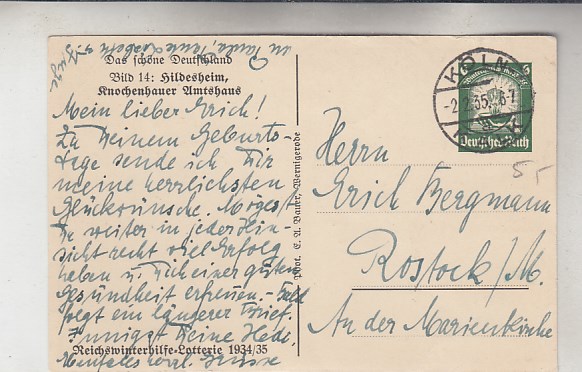 an Paula, Tante Lisbeth u.
Das schöne Deutschland
Bild 14: Hildesheim,
Knochenhauer Amtshaus
Mein lieber Erich!
Zu Deinem Geburts-
tage sende ich Dir
meine herrlichsten
Glückwünsche. Mögest
Du weiter in jeder Hin-
sicht recht viel Erfolg
haben u. Dich einer guten
Gesundheit erfreuen. - Bald
folgt ein längerer Brief.
Innigst Deine Hede.
herzl. Grüsse
Reichswinterhilfe-Lotterie 1934/35
Phot. E. A. Bauer, Wernigerode
KÖLN
-2.2.35.
6-7
6
Deutsches Reich
55
Herrn
Erich Bergmann
Rostock/M.
An der Marienkirche